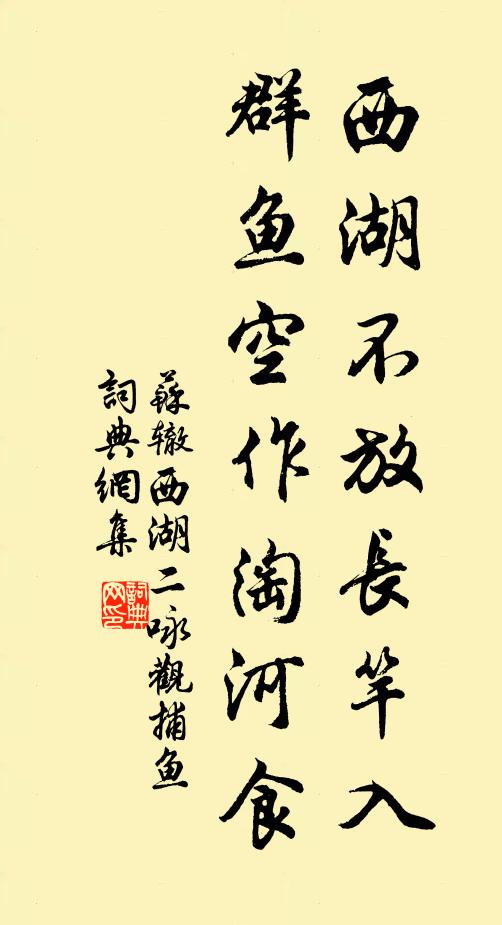 西湖不放長竿入
群鱼空作淘河食
蘇辙西湖二咏觀捕鱼
詞典網集
詞典网印